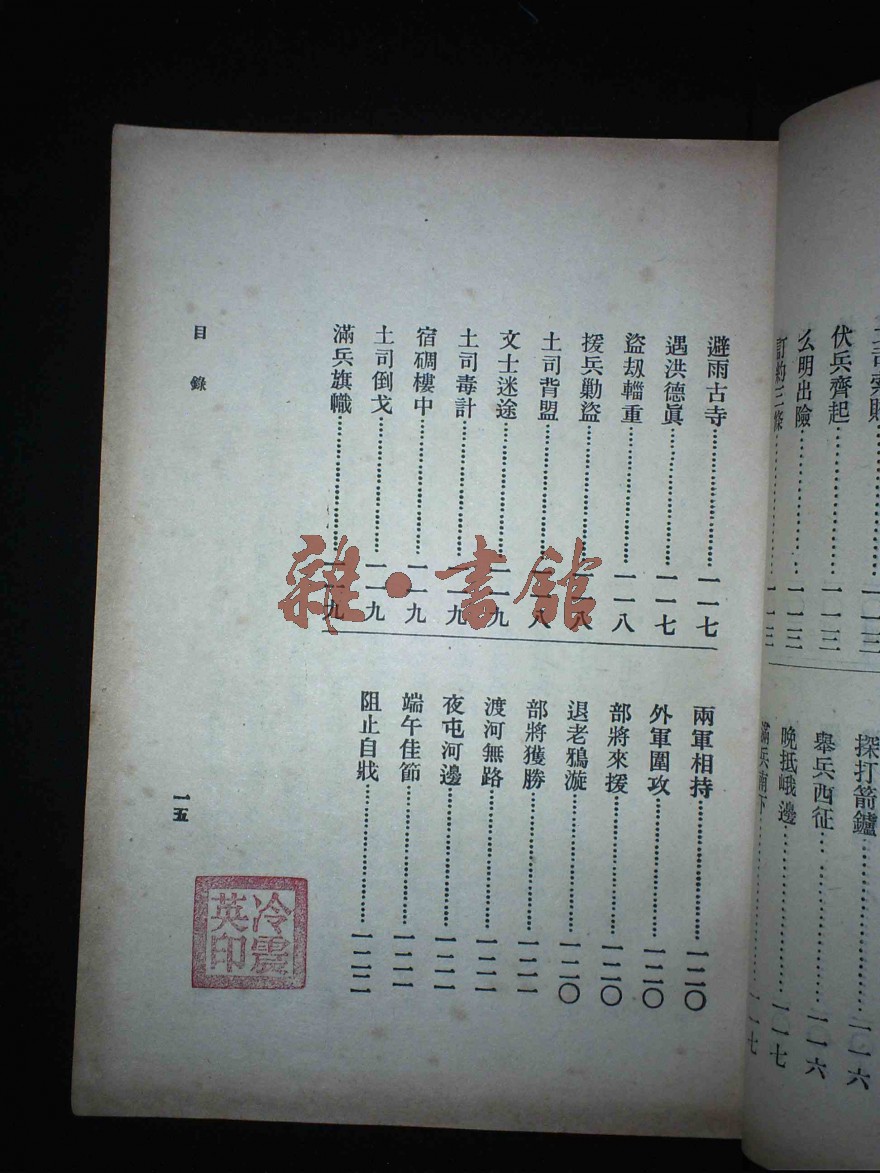 伏兵齊起…………一一三
么明出險…………一一三
訂約三條…………一一三
探打箭鑪…………一一六
舉兵西征…………一一六
晚抵峨邊…………一一七
滿兵南下…………一一七
避雨古寺…………一一七
遇洪德眞…………一一七
盜刼輜重…………一一八
援兵勦盜…………一一八
土司背盟…………一一八
文士迷途…………一一九
土司毒計…………一一九
宿碉樓中…………一一九
土司倒戈…………一一九
滿兵旗幟…………一一九
兩軍相持…………一二〇
外軍圍攻…………一二〇
部將來援…………一二〇
退老鴉漩…………一二〇
部將獲勝…………一二一
渡河無路…………一二一
夜屯河邊…………一二一
端午佳節…………一二一
阻止自戕…………一二二
目錄
一五
冷震
英印
雜·書館